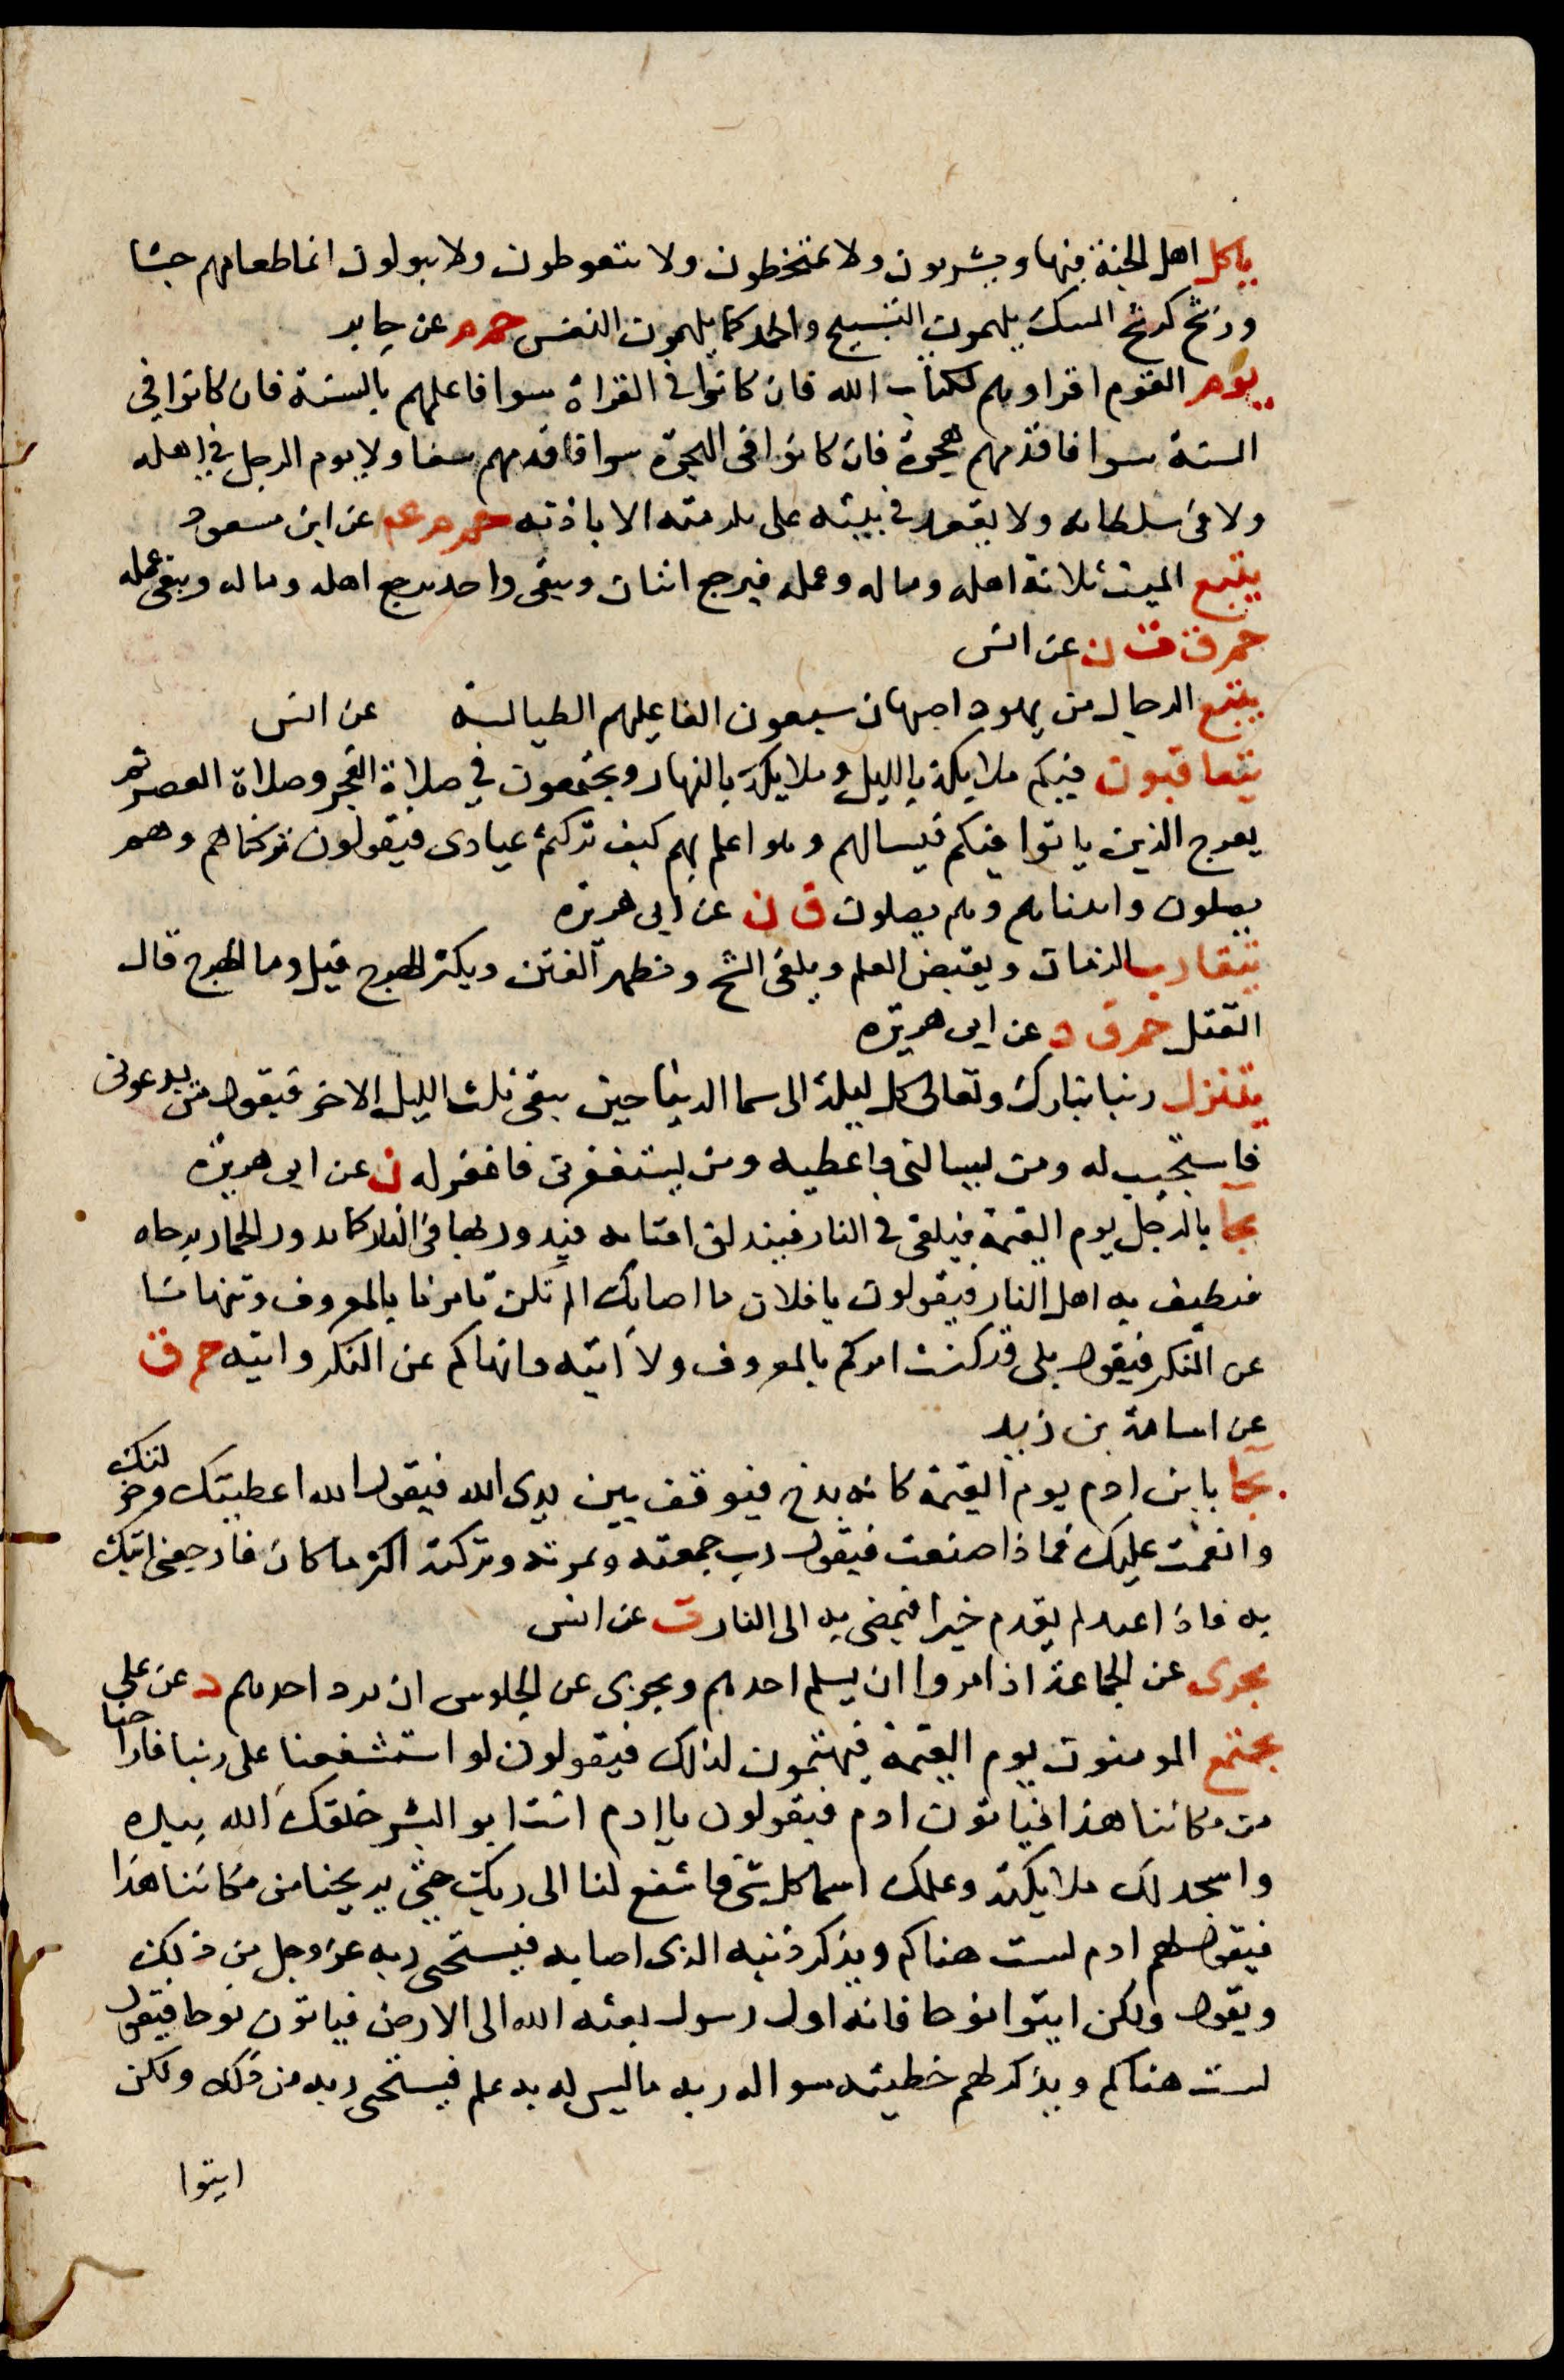 ياكل اهل الجنة فيها ويشربون ولا يمتخطون ولا يتغوطون ولا يبولون انما طعامهم جشا
ورشح كرشح المسك يلهمون التسبيح والحمد كما يلهمون النفس حم م عن جابر
يوم القوم اقراوهم لكتاب الله فان كانوا في القراة سوا فاعلمهم بالسنة فان كانوا في
السنة سوا فاقدمهم هجرة فان كانوا في الهجرة سوا فاقدمهم سنا ولا يوم الرجل في اهله
ولا في سلطانه ولا يقعد في بيته على تكرمته الا باذنه حم م عم عن ابن مسعود
يتبع الميت ثلاثة اهله وماله وعمله فيرجع اثنان ويبقى واحد يرجع اهله وماله ويبقى عمله
حم ق ت ن عن انس
يتبع الدجال من يهود اصبهان سبعون الفا عليهم الطيالسة عن انس
يتعاقبون فيكم ملايكة بالليل وملايكة بالنهار ويجتمعون في صلاة الفجر وصلاة العصر ثم
يعرج الذين باتوا فيكم فيسالهم وهو اعلم بهم كيف تركتم عبادى فيقولون تركناهم وهم
يصلون واتيناهم وهم يصلون ق ن عن ابى هريرة
يتقارب الزمان ويقبض العلم ويلقى الشح وتظهر الفتن ويكثر الهرج قيل وما الهرج قال
القتل حم ق د عن ابى هريره
يتنزل ربنا تبارك وتعالى كل ليلة الى سما الدنيا حين يبقى ثلث الليل الاخر فيقول من يدعونى
فاستجيب له ومن يسالنى فاعطيه ومن يستغفرنى فاغفر له ق عن ابى هريرة
يجا بالرجل يوم القيمة فيلقى في النار فتندلق اقتابه فيدور بها في النار كما يدور الحمار برحاه
فيطيف به اهل النار فيقولون يا فلان ما اصابك الم تكن تامرنا بالمعروف وتنهانا
عن المنكر فيقول بلى قد كنت امركم بالمعروف ولا اتيه وانهاكم عن المنكر واتيه حم ق
عن اسامة بن زيد
يجا بابن ادم يوم القيمة كانه بذج فيوقف بين يدى الله فيقول الله اعطيتك وخولتك
وانعمت عليك فماذا صنعت فيقول رب جمعته وثمرته وتركته اكثر ما كان فارجعنى اتيك
به فاذا عبد لم يقدم خيرا فيمضى به الى النار ت عن انس
يجزى عن الجماعة اذا مروا ان يسلم احدهم ويجزى عن الجلوس ان يرد احدهم د عن على
يجتمع المومنون يوم القيمة فيهتمون لذلك فيقولون لو استشفعنا على ربنا فاراحنا
من مكاننا هذا فياتون ادم فيقولون يا ادم انت ابو البشر خلقك الله بيده
واسجد لك ملايكته وعلمك اسما كل شى فاشفع لنا الى ربك حتى يريحنا من مكاننا هذا
فيقول لهم ادم لست هناكم ويذكر ذنبه الذى اصابه فيستحى ربه عز وجل من ذلك
ويقول ولكن ايتوا نوحا فانه اول رسول بعثه الله الى الارض فياتون نوحا فيقول
لست هناكم ويذكر لهم خطيته سواله ربه ما ليس له به علم فيستحى ربه من ذلك ولكن
ايتوا